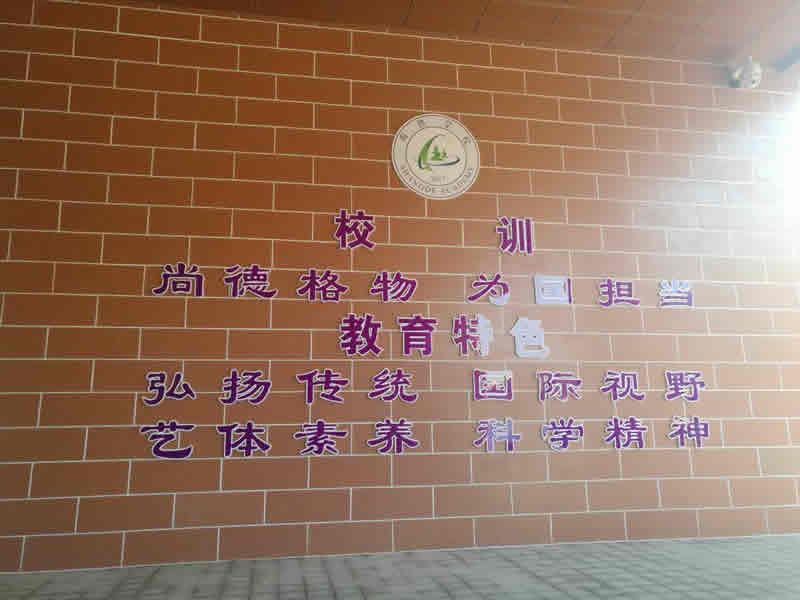 SHANGDE ACADEMY
校 训
尚德格物 为国担当
教育特色
弘扬传统 国际视野
艺体素养 科学精神